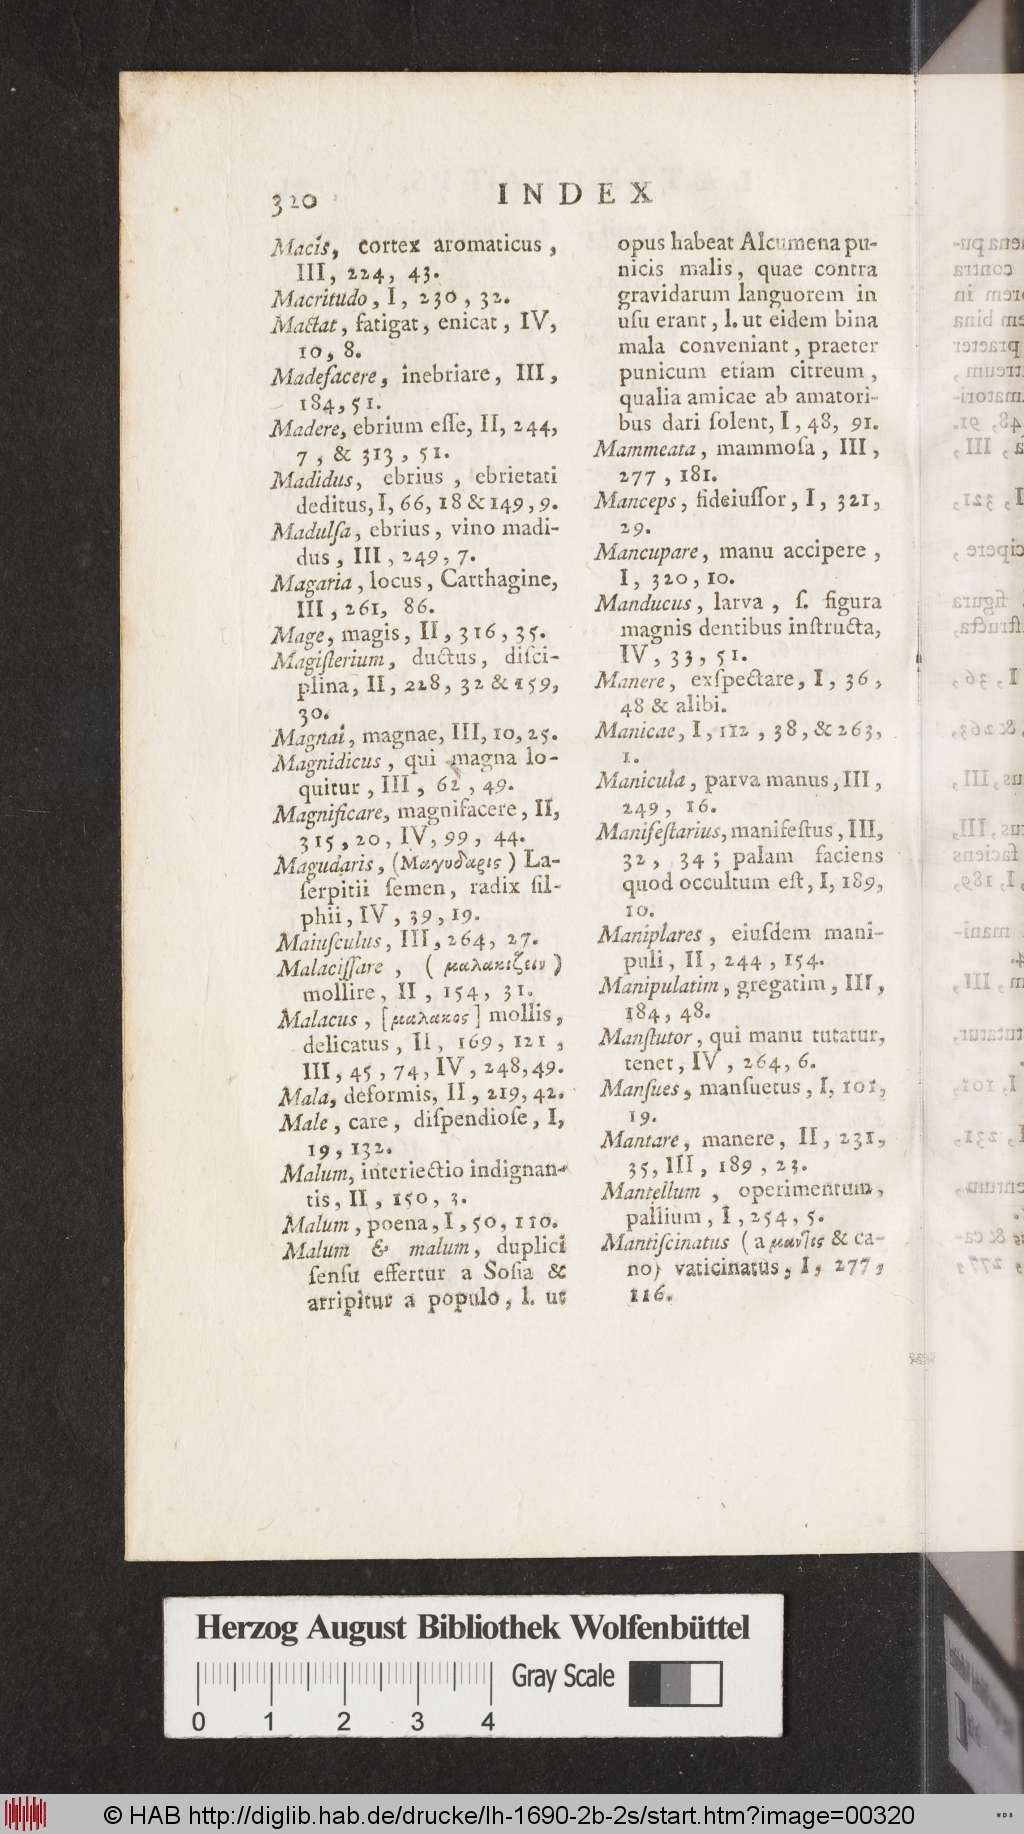 320
INDEX
Macis, cortex aromaticus,
III, 224, 43.
Macritudo, I, 230, 32.
Mactat, fatigat, enicat, IV,
10, 8.
Madefacere, inebriare, III,
184, 51.
Madere, ebrium eſſe, II, 244,
7, & 313, 51.
Madidus, ebrius, ebrietati
deditus, I, 66, 18 & 149, 9.
Madulſa, ebrius, vino madi-
dus, III, 249, 7.
Magaria, locus, Carthagine,
III, 261, 86.
Mage, magis, II, 316, 35.
Magiſterium, ductus, diſci-
plina, II, 228, 32 & 159,
30.
Magnai, magnae, III, 10, 25.
Magnidicus, qui magna lo-
quitur, III, 62, 49.
Magnificare, magnifacere, II,
315, 20, IV, 99, 44.
Magudaris, (Μαγυδαρις) La-
ſerpitii ſemen, radix ſil-
phii, IV, 39, 19.
Maiuſculus, III, 264, 27.
Malaciſſare, (μαλακιζειν)
mollire, II, 154, 31.
Malacus, [μαλακος] mollis,
delicatus, II, 169, 121,
III, 45, 74, IV, 248, 49.
Mala, deformis, II, 219, 42.
Male, care, diſpendioſe, I,
19, 132.
Malum, interiectio indignan-
tis, II, 150, 3.
Malum, poena, I, 50, 110.
Malum & malum, duplici
ſenſu effertur a Soſia &
arripitur a populo, l. ut
opus habeat Alcumena pu-
nicis malis, quae contra
gravidarum languorem in
uſu erant, l. ut eidem bina
mala conveniant, praeter
punicum etiam citreum,
qualia amicae ab amatori-
bus dari ſolent, I, 48, 91.
Mammeata, mammoſa, III,
277, 181.
Manceps, fideiuſſor, I, 321,
29.
Mancupare, manu accipere,
I, 320, 10.
Manducus, larva, ſ. figura
magnis dentibus inſtructa,
IV, 33, 51.
Manere, exſpectare, I, 36,
48 & alibi.
Manicae, I, 112, 38, & 263,
1.
Manicula, parva manus, III,
249, 16.
Manifeſtarius, manifeſtus, III,
32, 34; palam faciens
quod occultum eſt, I, 189,
10.
Maniplares, eiuſdem mani-
puli, II, 244, 154.
Manipulatim, gregatim, III,
184, 48.
Manſtutor, qui manu tutatur,
tenet, IV, 264, 6.
Manſues, manſuetus, I, 101,
19.
Mantare, manere, II, 231,
35, III, 189, 23.
Mantellum, operimentum,
pallium, I, 254, 5.
Mantiſcinatus (a μαντις & ca-
no) vaticinatus, I, 277,
116.
Herzog August Bibliothek Wolfenbüttel
Gray Scale
0 1 2 3 4
© HAB http://diglib.hab.de/drucke/lh-1690-2b-2s/start.htm?image=00320